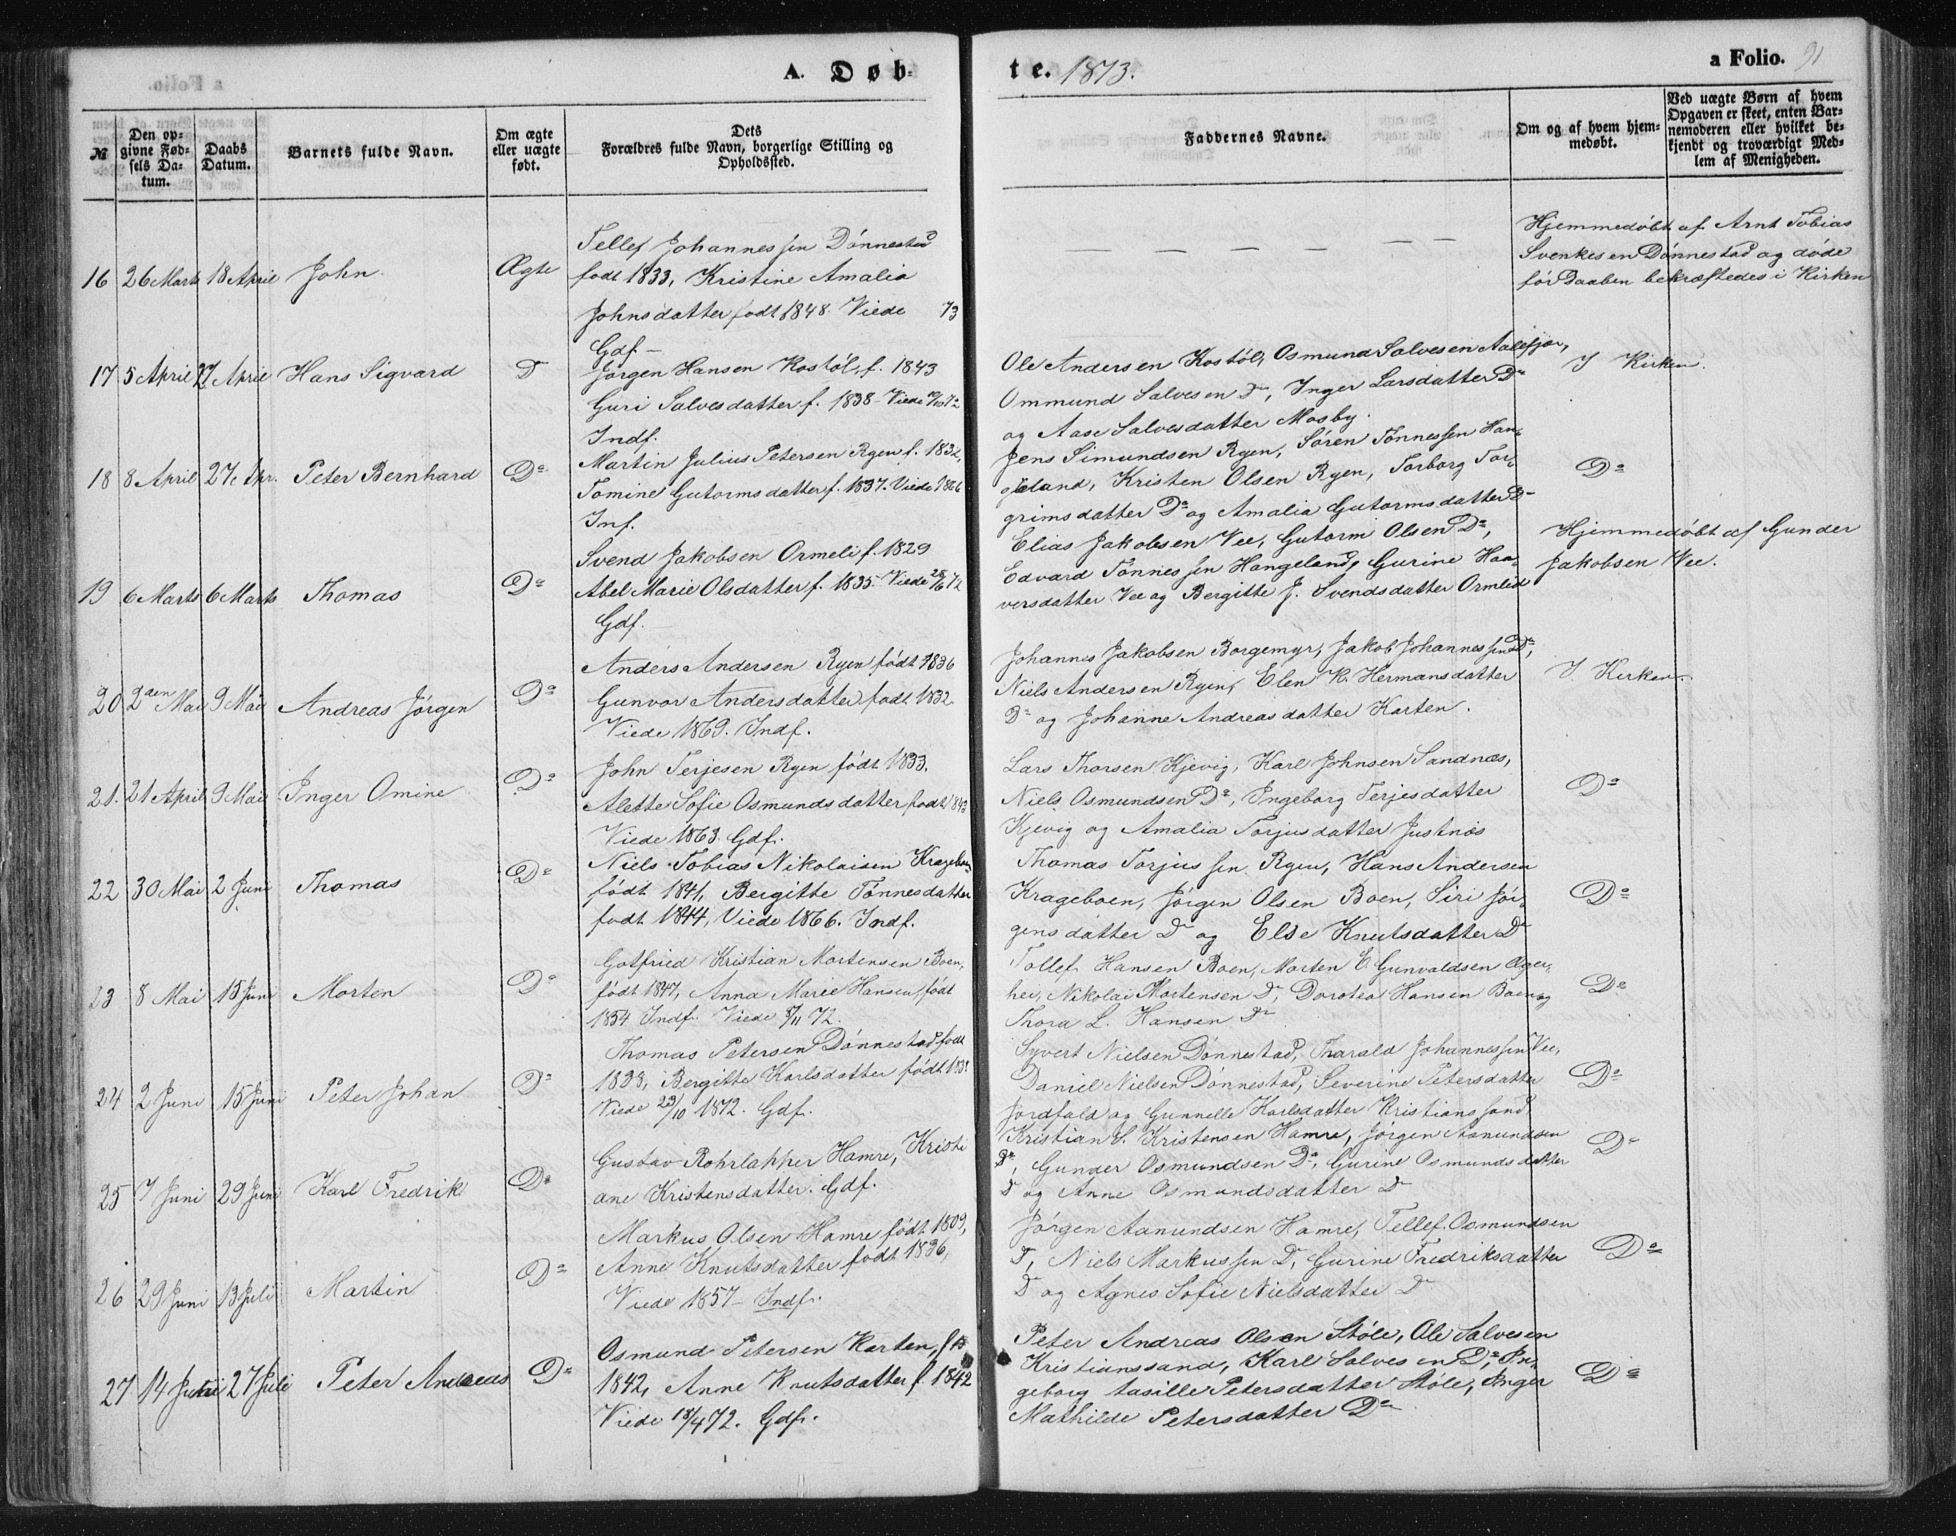 A. Døb-
te. 1873.
a Folio. 91
№
Den op-
givne Fød-
sels Da-
tum.
Daabs
Datum.
Barnets fulde Navn.
Om ægte
eller uægte
født.
Dets
Forældres fulde Navn, borgerlige Stilling og
Opholdssted.
Faddernes Navne.
Om og af hvem hjem-
medøbt.
Ved uægte Børn af hvem
Opgaven er skeet, enten Bar-
nemoderen eller hvilket be-
kjendt og troværdigt Med-
lem af Menigheden.
16 26 Marts 18 April John Ægte
Tellef Johannessen Dønnestad
født 1833, Kristine Amalia
Johnsdatter født 1848. Viede 73
Gdf.
— — — — —
Hjemmedøbt af Arnt Tobias
Svenkesen Dønnestad og døde
før Daaben bekræftedes i Kirken
17 5 April 27 April Hans Sigvard D
Jørgen Hansen Kostøl, f. 1843
Guri Salvesdatter f. 1838 Viede
Indf.
Ole Andersen Kostøl, Osmund Salvesen Aalefjær,
Ommund Salvesen Do, Inger Larsdatter Do
og Aase Salvesdatter Mosby.
I Kirken.
18 8 April 27 Apr. Peter Bernhard Do
Martin Julius Petersen Ryen f. 1832,
Tomine Gutormsdatter f. 1837. Viede 1866
Inf.
Jens Simundsen Ryen, Søren Tønnessen Han-
geland, Kristen Olsen Ryen, Torborg Tor-
grimsdatter Do og Amalia Gutormsdatter Do
Do
19 6 Marts 6 Marts Thomas Do
Svend Jakobsen Ormeli f. 1829
Abel Marie Olsdatter f. 1835 Viede 28/6 72
Gdf.
Elias Jakobsen Vee, Gutorm Olsen Do,
Edvard Tønnessen Hangeland, Gurine Haa-
versdatter Vee og Bergitte J. Svendsdatter Ormlid
Hjemmedøbt af Gunder
Jakobsen Vee.
20 2den Mai 9 Mai Andreas Jørgen Do
Anders Andersen Ryen født 1836
Gunvor Andersdatter født 1832
Viede 1869. Indf.
Johannes Jakobsen Borgemyr, Jakob Johannessen Do,
Niels Andersen Ryen, Elen K. Hermansdatter
Do og Johanne Andreasdatter Karten.
I Kirken.
21. 21 April 9 Mai Inger Omine Do
John Terjesen Ryen født 1833.
Alette Sofie Osmundsdatter født 1842
Viede 1863. Gdf.
Lars Thorsen Kjevig, Karl Johnsen Sandnæs,
Niels Osmundsen Do, Ingeborg Terjesdatter
Kjevig og Amalia Torjusdatter Justnæs
Do
22 30 Mai 2 Juni Thomas Do
Niels Tobias Nikolaisen Krageboen
født 1841, Bergitte Tønnesdatter
født 1844, Viede 1866. Indf.
Thomas Torjussen Ryen, Hans Andersen
Krageboen, Jørgen Olsen Boen, Siri Jør-
gensdatter Do og Else Knutsdatter Do
Do
23 8 Mai 15 Juni Morten Do
Gotfried Kristian Mortensen Boen,
født 1847, Anna Marie Hansen født
1854 Indf. Viede 5/11 72.
Tollef Hansen Boen, Morten E. Gunvaldsen Ager-
hei, Nikolai Mortensen Do, Dorotea Hansen Boen og
Thora L. Hansen Do
Do
24 2 Juni 15 Juni Peter Johan Do
Thomas Petersen Dønnestad født
1838, Bergitte Karlsdatter født
Viede 29/10 1872. Gdf.
Syvert Nielsen Dønnestad, Tharald Johannessen Vee,
Daniel Nielsen Dønnestad, Severine Petersdatter
Jordfald og Gunnelle Karlsdatter Kristianssand
Do
25 7 Juni 29 Juni Karl Fredrik Do
Gustav Rohrlapper Hamre, Kristi
ane Kristensdatter. Gdf.
Kristian S. Kristensen Hamre, Jørgen Aamundsen
Do, Gunder Osmundsen Do, Gurine Osmundsdatter
Do og Anne Osmundsdatter Do
Do
26 29 Juni 13 Juli Martin Do
Markus Olsen Hamre født 1809,
Anne Knutsdatter født 1836,
Viede 1857 Indf.
Jørgen Aamundsen Hamre, Tellef Osmundsen
Do, Niels Markussen Do, Gurine Fredriksdatter
Do og Agnes Sofie Nielsdatter Do
Do
27 14 Juni 27 Juli Peter Andreas Do
Osmund Petersen Karten,
1842, Anne Knutsdatter f. 1842
Viede 18/4 72. Gdf.
Peter Andreas Olsen Støle, Ole Salvesen
Kristianssand, Karl Salvesen Do, In-
geborg tasille Petersdatter Støle, Inger
Mathilde Petersdatter Do
Do